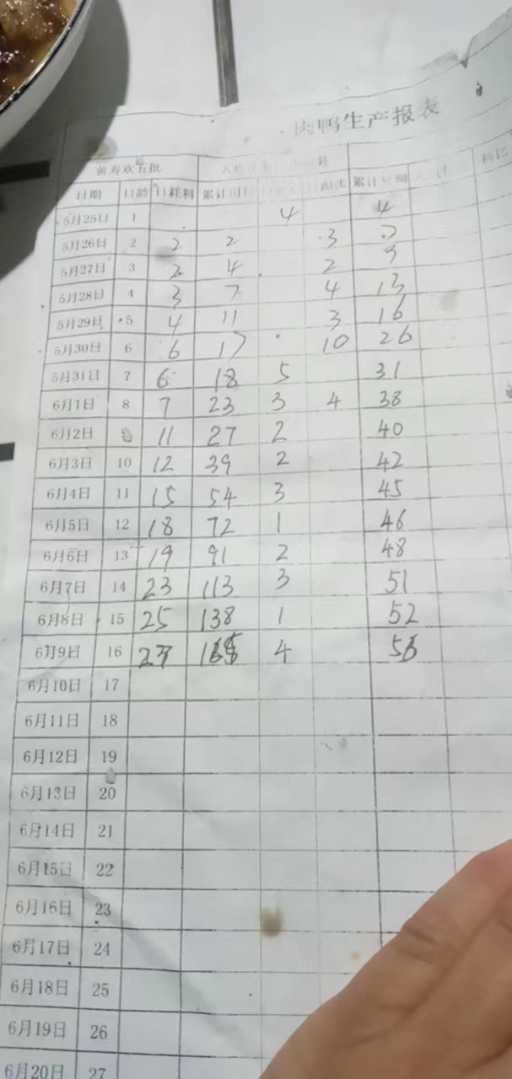 肉鸭生产报表
日期 日龄 日耗料 累计
5月25日 1 4 4
5月26日 2 2 2 3 7
5月27日 3 2 4 2 9
5月28日 4 3 7 4 13
5月29日 5 4 11 3 16
5月30日 6 6 17 10 26
5月31日 7 6 18 5 31
6月1日 8 7 23 3 4 38
6月2日 11 27 2 40
6月3日 10 12 39 2 42
6月4日 11 15 54 3 45
6月5日 12 18 72 1 46
6月6日 13 19 91 2 48
6月7日 14 23 113 3 51
6月8日 15 25 138 1 52
6月9日 16 4
6月10日 17
6月11日 18
6月12日 19
6月13日 20
6月14日 21
6月15日 22
6月16日 23
6月17日 24
6月18日 25
6月19日 26
6月20日 27